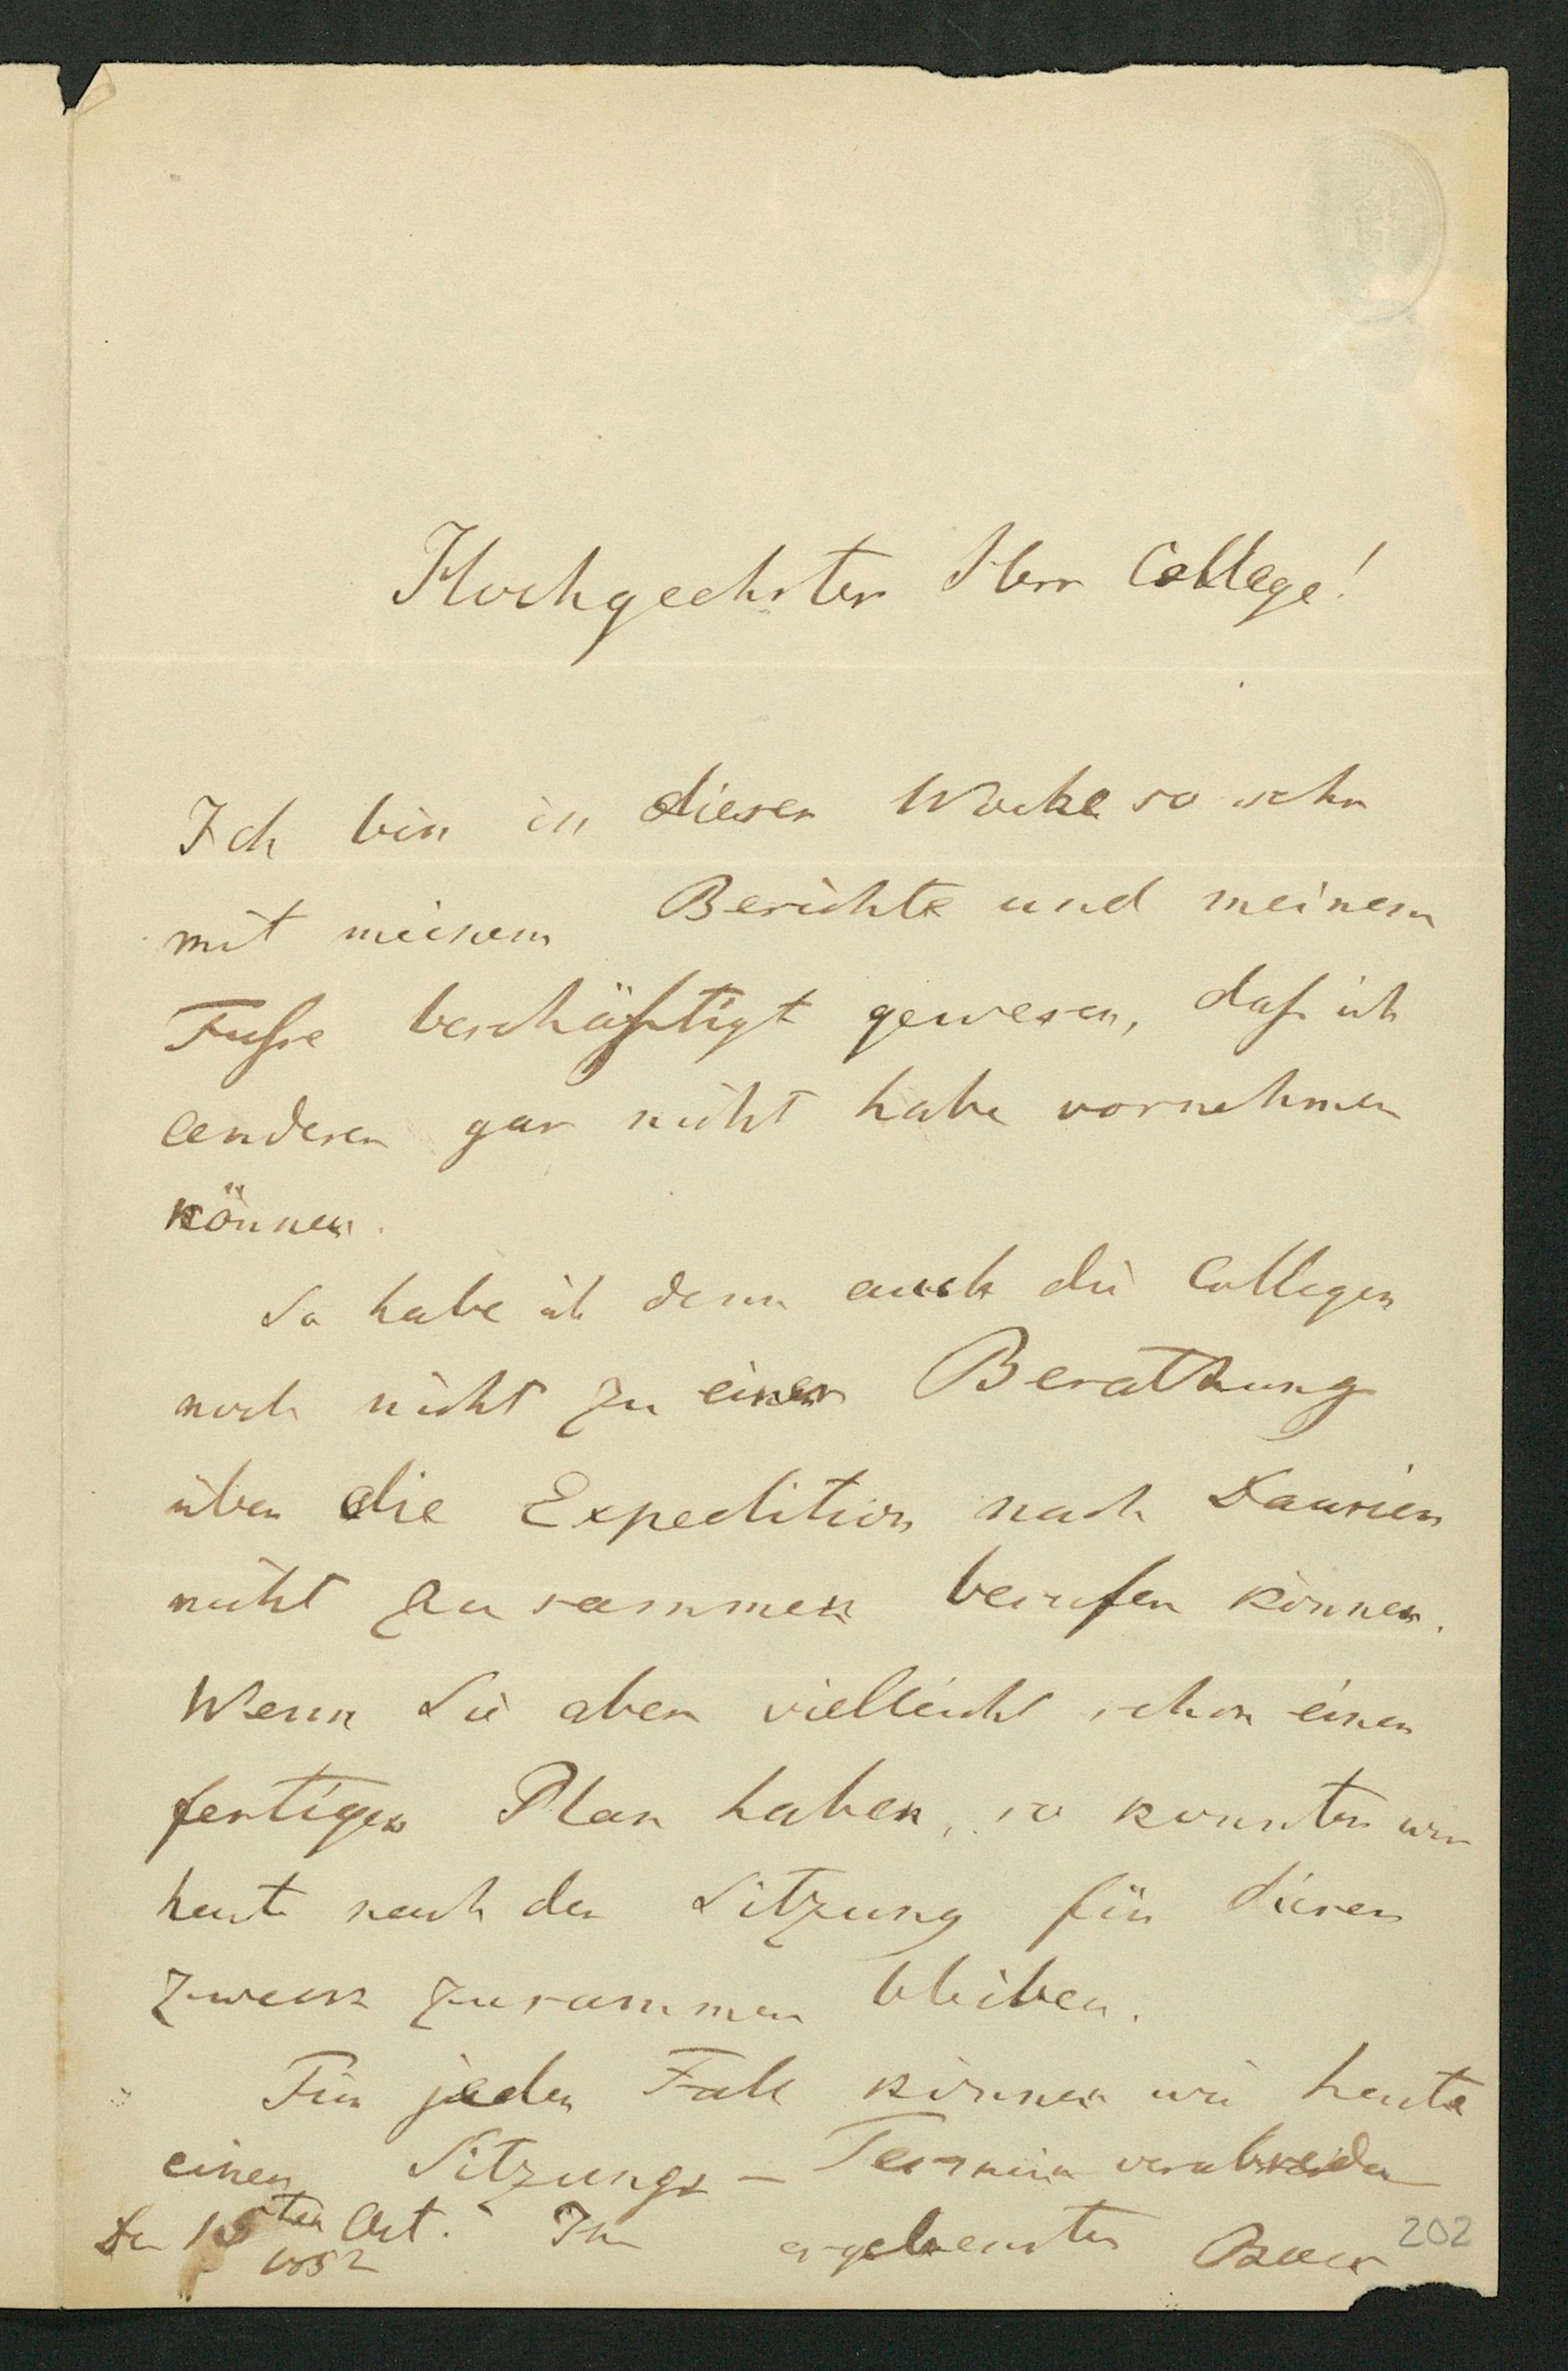 Hochgeehrter Herr College!
Ich bin in dieser Woche so sehr
mit meinem Berichte und meinem
Fuße beschäftigt gewesen, daß ich
anderes gar nicht habe vornehmen
können.
So habe ich denn auch die Collegen
noch nicht zu einer Berathung
über die Expedition nach Daurien
nicht zusammen berufen können.
Wenn Sie aber vielleicht schon einen
fertigen Plan haben, so konnten wir
heute nach der Sitzung für diesen
Zweck zusammen bleiben.
Für jeden Fall können wir heute
einen Sitzungs-Termin verabreden
Den ten Oct. Ihr ergebenster Baer
1852
202